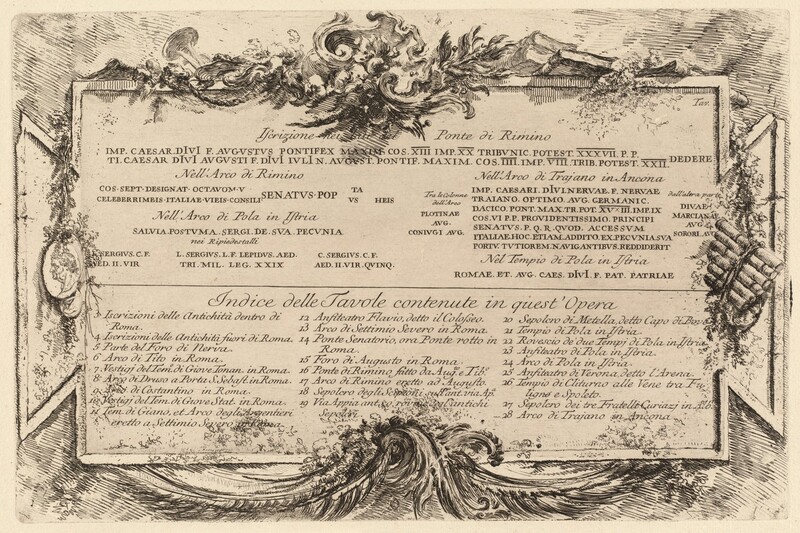 Tav.
Iscrizione Ponte di Rimino
IMP. CAESAR. DIVI F. AVGVSTVS PONTIFEX MAXIM COS. XIII IMP. XX TRIBVNIC. POTEST. XXXVII. P. P.
TI. CAESAR DIVI AVGVSTI F. DIVI IVLI N. AVGVST. PONTIF. MAXIM. COS. IIII. IMP. VIII TRIB. POTEST. XXII. DEDERE
Nell'Arco di Rimino
COS. SEPT. DESIGNAT. OCTAVOM. V
CELEBERRIMEIS. ITALIAE. VIEIS. CONSILI SENATVS. POP
TA
VS HEIS
Nell'Arco di Pola in Istria
SALVIA. POSTVMA. SERGI. DE. SVA. PECVNIA
nei Ripiedestalli
L. SERGIVS. C. F.
AED. II. VIR
L. SERGIVS. L. F. LEPIDVS. AED.
TRI. MIL. LEG. XXIX
C. SERGIVS. C. F.
AED. II. VIR. QVINQ.
Nell'Arco di Trajano in Ancona
Tra le Colonne
dell'Arco
PLOTINAE
AVG.
CONIVGI AVG.
IMP. CAESARI. DIVI. NERVAE. F. NERVAE
TRAIANO. OPTIMO. AVG. GERMANIC.
DACICO. PONT. MAX. TR. POT. XVIIII. IMP. IX
COS. VI. P. P. PROVIDENTISSIMO. PRINCIPI
SENATVS. P. Q. R. QVOD. ACCESSVM
ITALIAE. HOC. ETIAM. ADDITO. EX. PECVNIA. SVA
PORTV. TVTIOREM. NAVIGANTIBVS. REDDIDERIT
dall'altra parte
DIVAE
MARCIANAE
AVG
SORORI. AVG
Nel Tempio di Pola in Istria
ROMAE. ET. AVG. CAES. DIVI. F. PAT. PATRIAE
Indice delle Tavole contenute in quest'Opera
3 Iscrizioni delle Antichità dentro di
Roma.
4 Iscrizioni delle Antichità fuori di Roma.
5 Parte del Foro di Nerva.
6 Arco di Tito in Roma.
7 Vestigj del Tem. di Giove Tonan. in Roma.
8 Arco di Druso a Porta S. Sebast. in Roma.
9 Arco di Costantino in Roma.
10 Vestigj del Tem. di Giove Stat. in Roma.
11 Tem. di Giano, et Arco degli Argentieri
eretto a Settimio Severo in Roma.
12 Anfiteatro Flavio, detto il Colosseo.
13 Arco di Settimio Severo in Roma.
14 Ponte Senatorio, ora Ponte rotto in
Roma.
15 Foro di Augusto in Roma.
16 Ponte di Rimino, fatto da Aug. e Tib.
17 Arco di Rimino eretto ad Augusto.
18 Sepolcro degli Scipioni sull'ant. via Ap.
19 Via Appia antichi
Sepolcri.
20 Sepolcro di Metella, detto Capo di Bove
21 Tempio di Pola in Istria.
22 Rovescio de' due Tempj di Pola in Istria.
23 Anfiteatro di Pola in Istria.
24 Arco di Pola in Istria.
25 Anfiteatro di Verona, detto l'Arena.
26 Tempio di Cliturno alle Vene tra Fu-
ligno e Spoleto.
27 Sepolcro dei tre Fratelli Curiazj in Alb.
28 Arco di Trajano in Ancona.